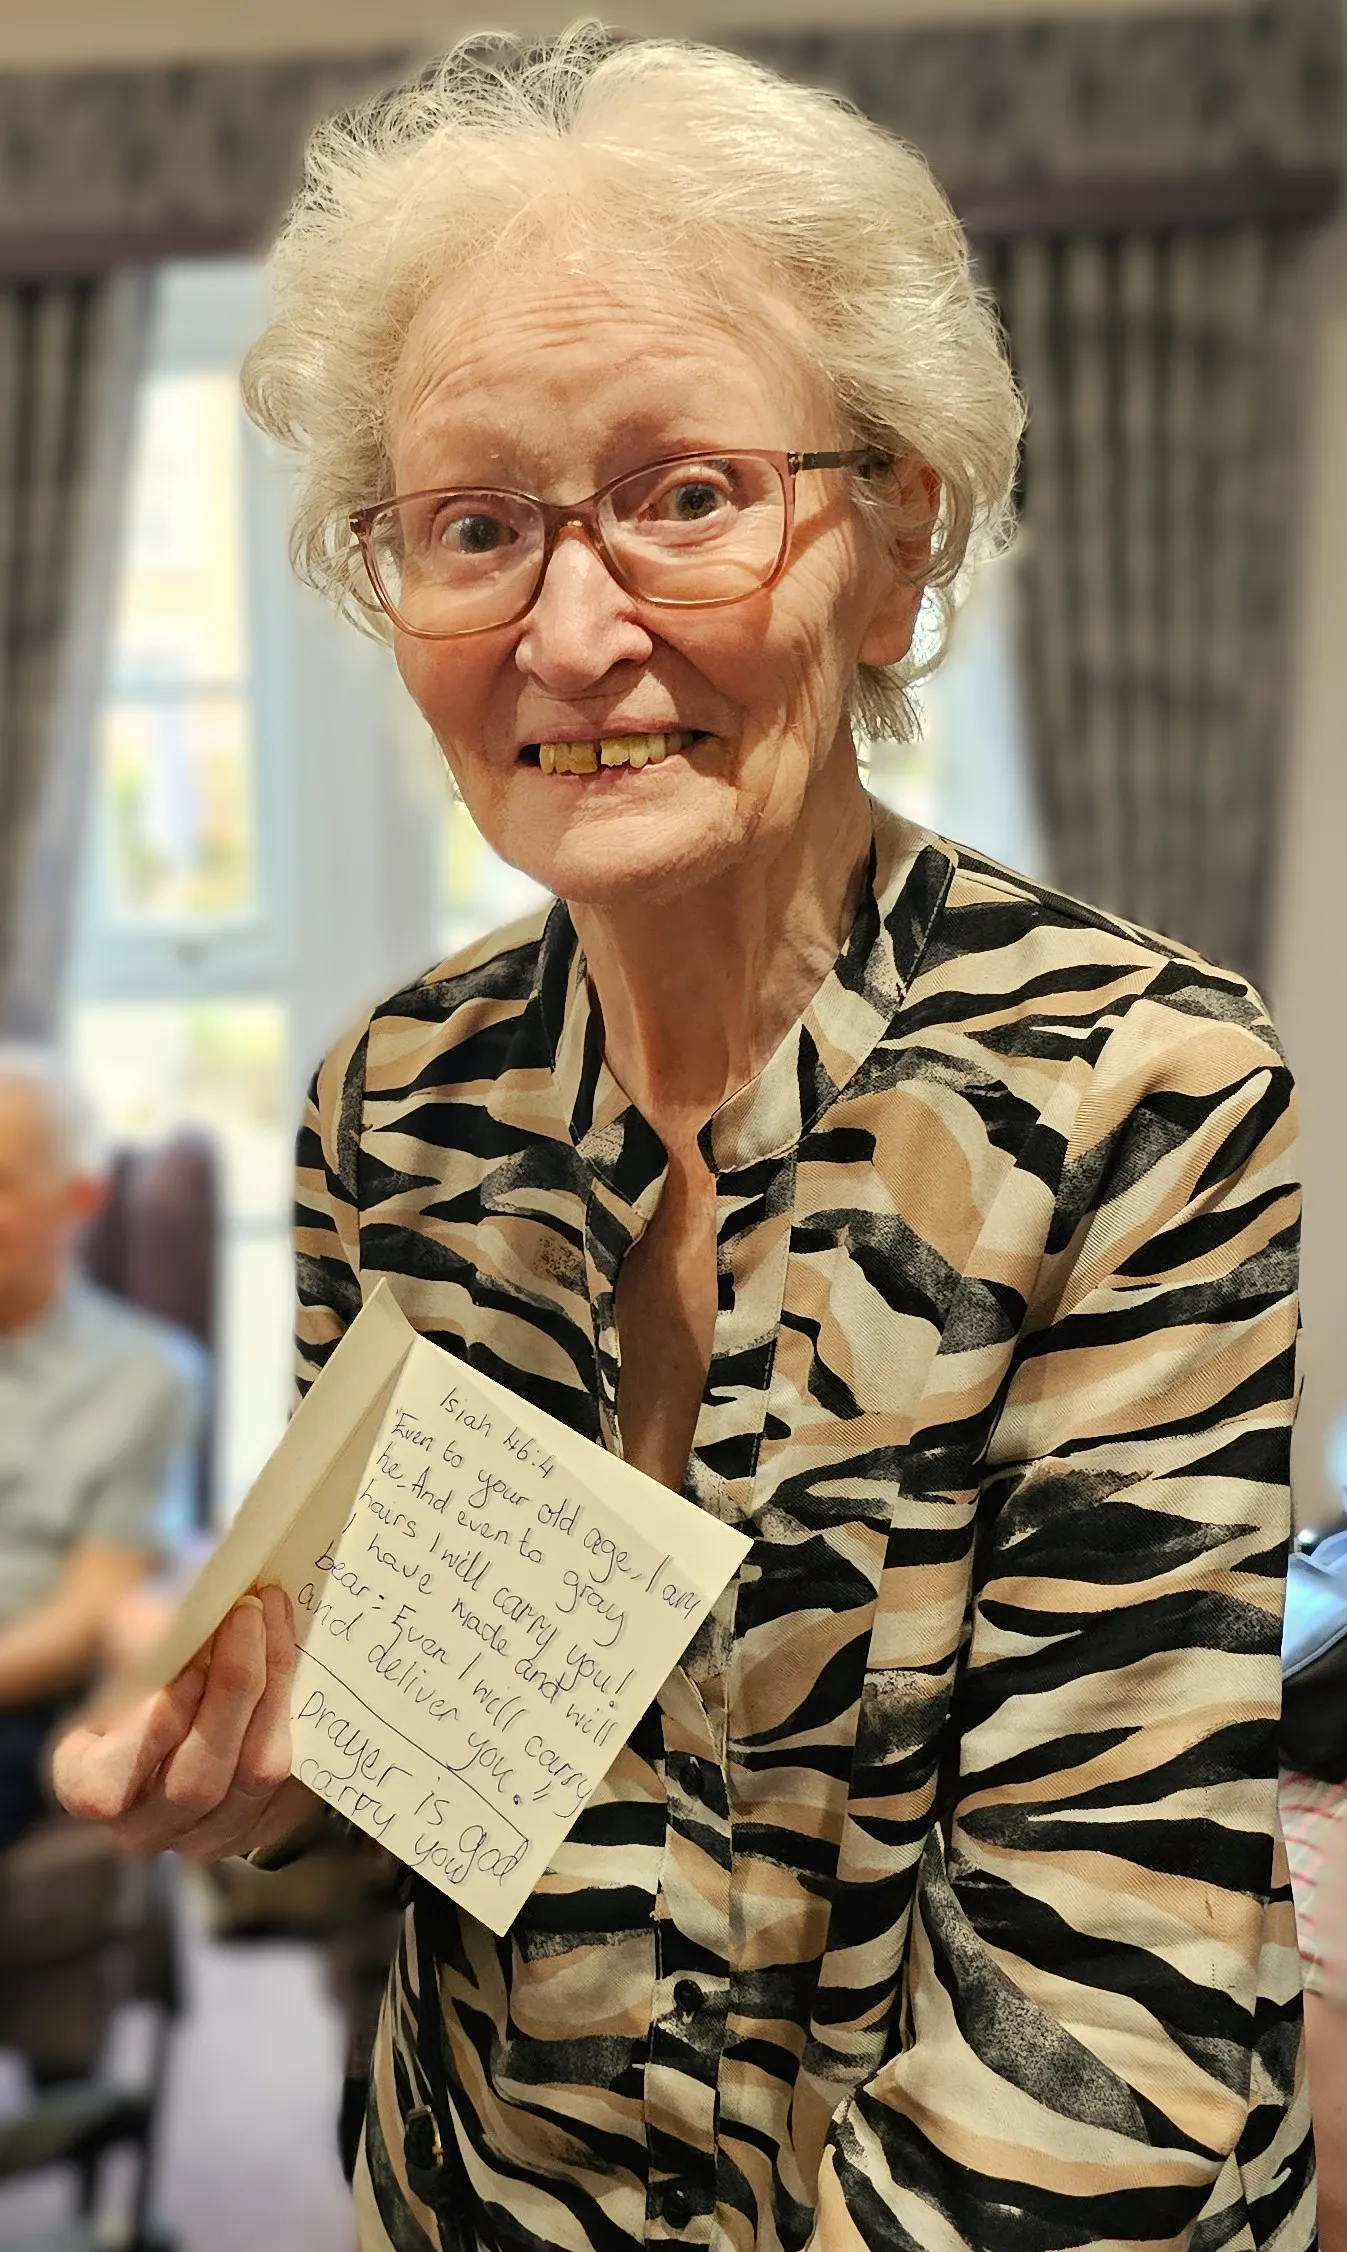 Isiah 46:4
"Even to your old age, I am
he. And even to gray
hairs I will carry you!
I have made and will
bear: Even I will carry
and deliver you."
Prayer is god
carry you